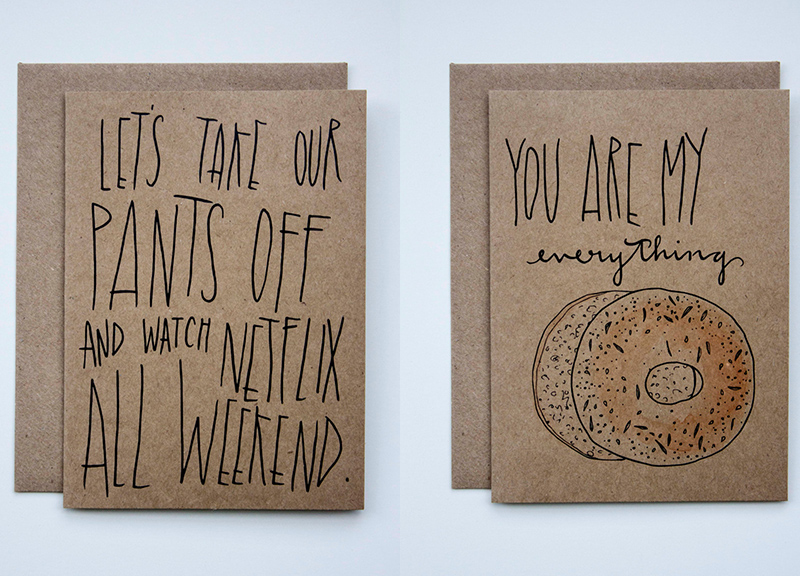 LET'S TAKE OUR
PANTS OFF
AND WATCH NETFLIX
ALL WEEKEND.
YOU ARE MY
everything